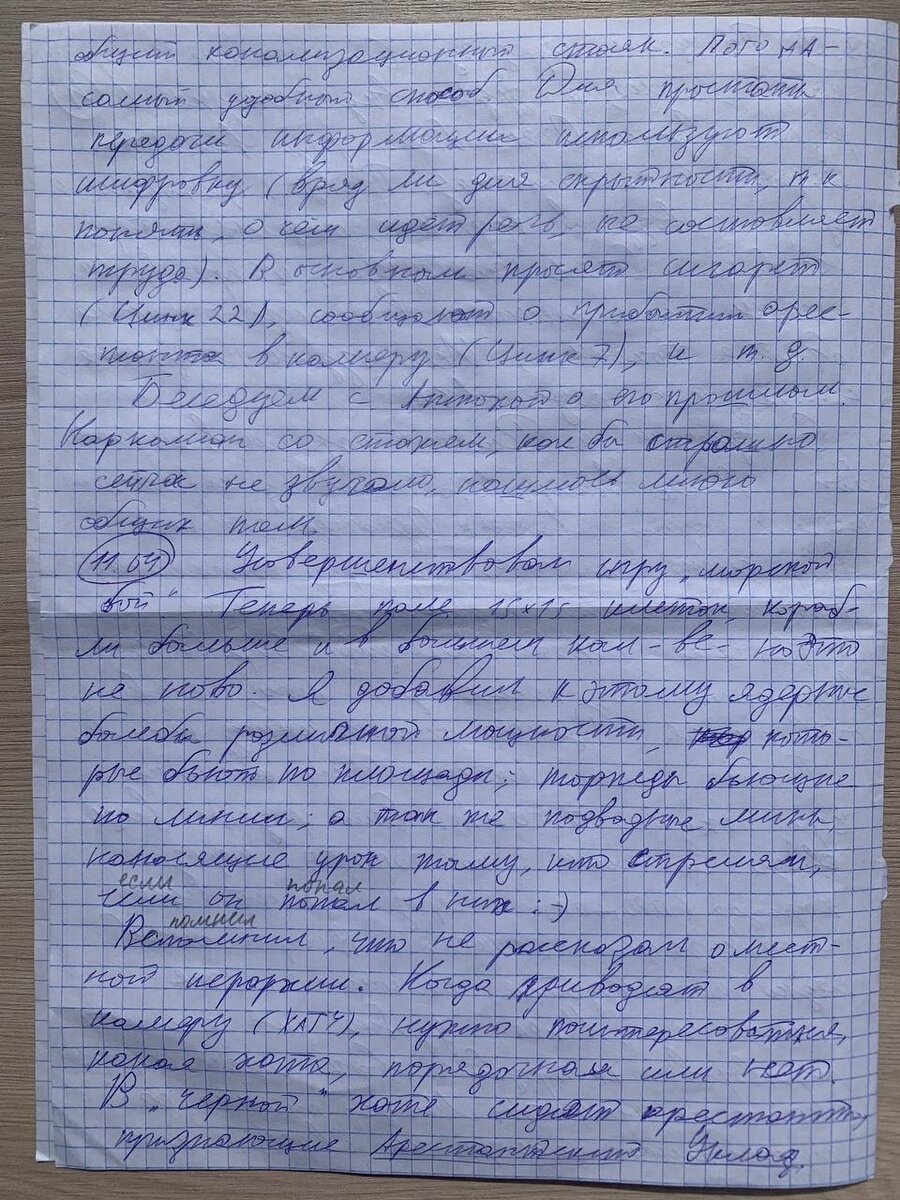 общий канализационный стояк. Пого на-
самый удобный способ. Для простоты
передачи информации используют
шифровку (вряд ли для скрытности, т.к
понять, о чём идёт речь, не составляет
труда). В основном просят сигарет
(Цинк 221), сообщают о прибытии арес-
танта в камеру (Цинк 7), и т.д.
Беседуем с о его прошлом.
Наркоман со стажем, как бы страшно
сейчас не звучало, нашлось много
общих тем.
11.04 Усовершенствовал игру "морской
бой". Теперь поле 15x15 клеток, кораб-
ли больше и в большем кол-ве - но это
не ново. Я добавил к этому ядерные
бомбы различной мощности, кото-
рые бьют по площади; торпеды бьющие
по линии; а так же подводные мины,
наносящие урон тому, кто стрелял,
если попал
если он попал в них :-)
помнил
Вспомнил, что не рассказал о мест-
ной иерархии. Когда приводят в
камеру (ХАТУ), нужно поинтересоваться,
какая хата, порядочная или нет.
В "черной" хате сидят арестанты,
признающие Арестантский Уклад,